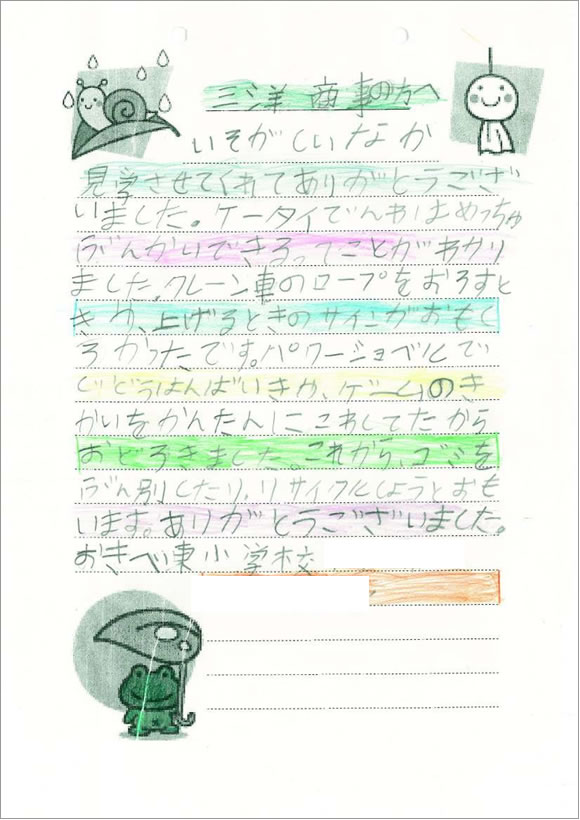 三洋 商事の方へ
いそがしいなか
見学させてくれてありがとうござ
いました。ケータイでんわはめっちゃ
ぶんかいできるってことがわかり
ました。クレーン車のロープをおろすと
きや、上げるときのサインがおもし
ろかったです。パワーショベルで
じどうはんばいきや、ゲームのき
かいをかんたんにこわしてたから
おどろきました。これから、ゴミを
ぶん別したり、リサイクルしようとおも
います。ありがとうございました。
おきべい東小学校